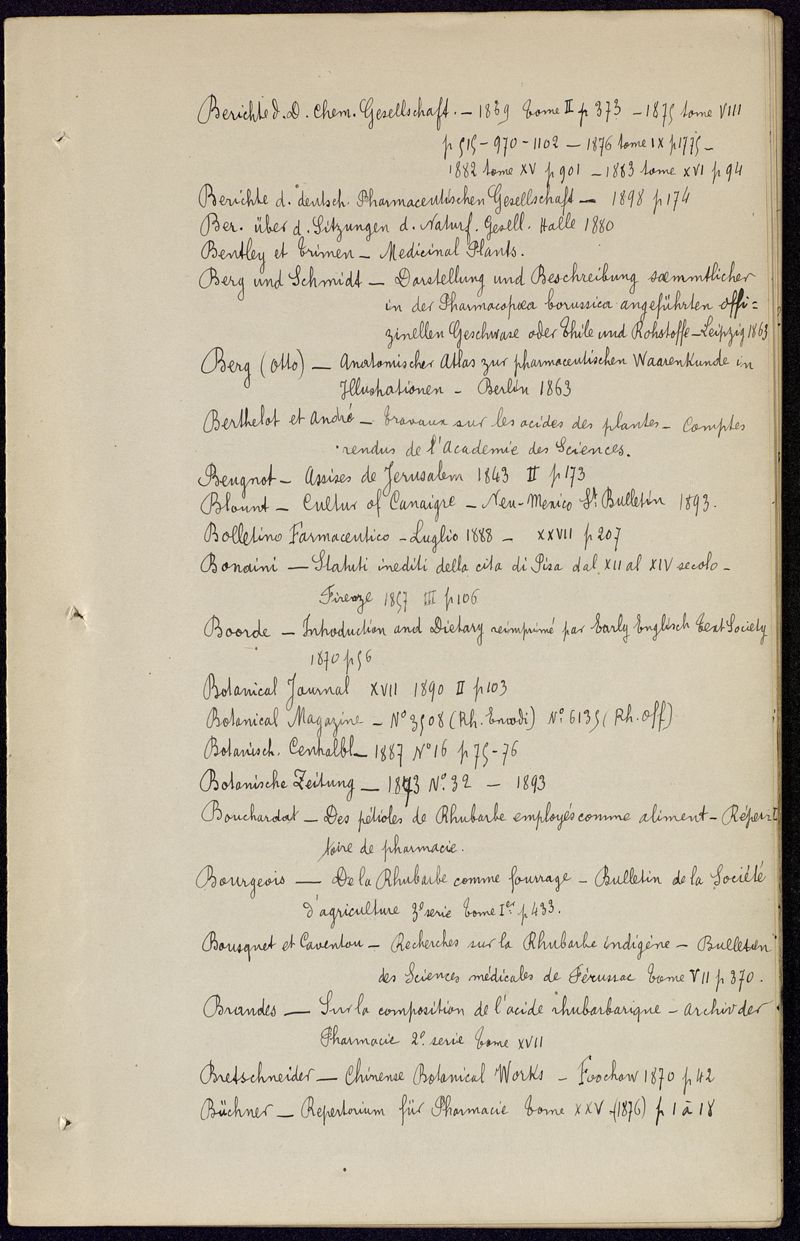 Berichte d. D. Chem. Gesellschaft. – 1869 tome II p 373 – 1875 tome VIII
p 519 – 970 – 1102 – 1876 tome IX p 1775 –
1882 tome XV p 901 – 1883 tome XVI p 94
Berichte d. deutsch. Pharmaceutischen Gesellschaft – 1898 p 174
Ber. über d. Sitzungen d. Naturf. Gesell. Halle 1880
Bentley et Trimen – Medicinal Plants.
Berg und Schmidt – Darstellung und Beschreibung sæmmtlicher
in der Pharmacopœa borussica angeführten offi=
zinellen Gechwase oder Thile und Rohstoffe – Leipzig 1863
Berg (Otto) – Anatomischer Atlas zur pharmaceutischen Waarenkunde in
Illustrationen – Berlin 1863
Berthelot et André – Travaux sur les acides des plantes – Comptes
rendus de l'Academie des Sciences.
Beugnot – Assises de Jerusalem 1843 II p 173
Blount – Cultur of Canaigre – Neu-Mexico St. Bulletin 1893.
Bolletino Farmaceutico – Luglio 1888 – XXVII p 207
Bonaini – Statuti inediti della cita di Pisa dal XII al XIV secolo –
Firenze 1857 III p 106
Boorde – Introduction and Dietary reimprimé par Early Englisch Text Society
1870 p 56
Botanical Journal XVII 1890 II p 103
Botanical Magazine – No 3508 (Rh. Emodi) No. 6135 (Rh. Off)
Botanisch. Centralbl – 1887 No 16 p 75-76
Botanische Zeitung – 1873 No. 32 – 1893
Bouchardat – Des pétioles de Rhubarbe employés comme aliment – Réper=
toire de pharmacie.
Bourgeois – De la Rhubarbe comme fourrage – Bulletin de la Société
d'agriculture 3e serie tome Ier p 433.
Bousquet et Caventou – Recherches sur la Rhubarbe indigéne – Bulleten
des Sciences médicales de Férussac tome VII p 370.
Brandes – Sur la composition de l'acide rhubarbarique – Archiv der
Pharmacie 2e serie tome XVII
Bretschneider – Chinense Botanical Works – Foochow 1870 p 42
Büchner – Repertorium für Pharmacie tome XXV (1876) p 1 à 18